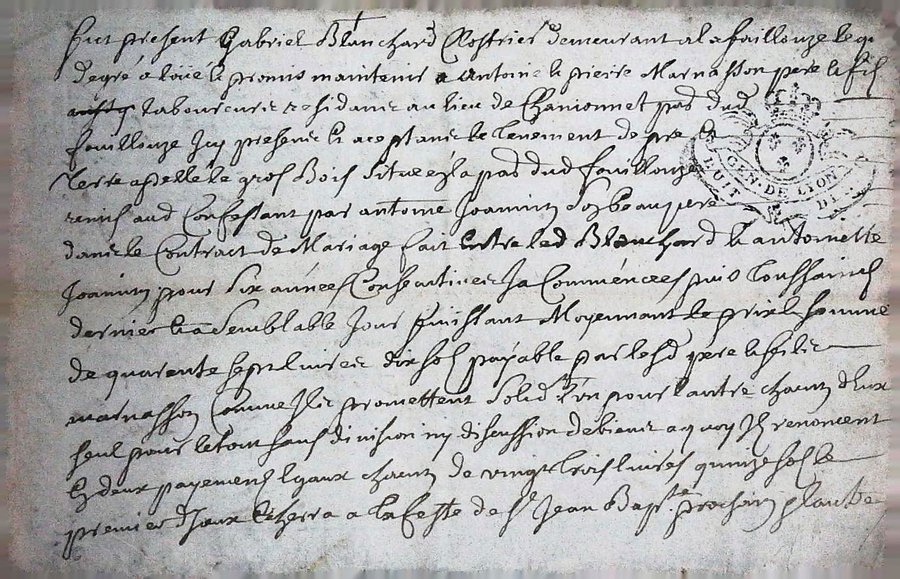 fut present Gabriel Blanchard Clostrier demeurant a la faillouze lequ
de gré a loüé & promis maintenir a Antoine & pierre Marnasson pere & fils
Laboureurs residants au lieu de Chanionnet pss dud
fouillouze Icy presents & aceptants le tenement de pre &
Terre apellé le gros Bois situez en la pss dud fouillouze
remis aud Confessant par antoine Joannin son beaupere
dans le Contract de Mariage fait entre led Blanchard & antoinette
Joannin pour Six années Consecutives Ja Commencées puis toussainctz
dernier & a Semblable Jour finissant Moyennant le prix & somme
de quarente sept livres dix sols payable par lesd pere & fils
marnasson Comme Ils promettent solidt l'un pour l'autre chacun d'Eux
seul pour le tout sans division ny discussion de biens a quoy Ils renoncent
En deux payements Egaux chacun de vingt trois livres quinze sols le
premier d'Iceux Escherra a la feste de St Jean Bapte prochain & l'autre
GEN. DE LYON
HUIT DE